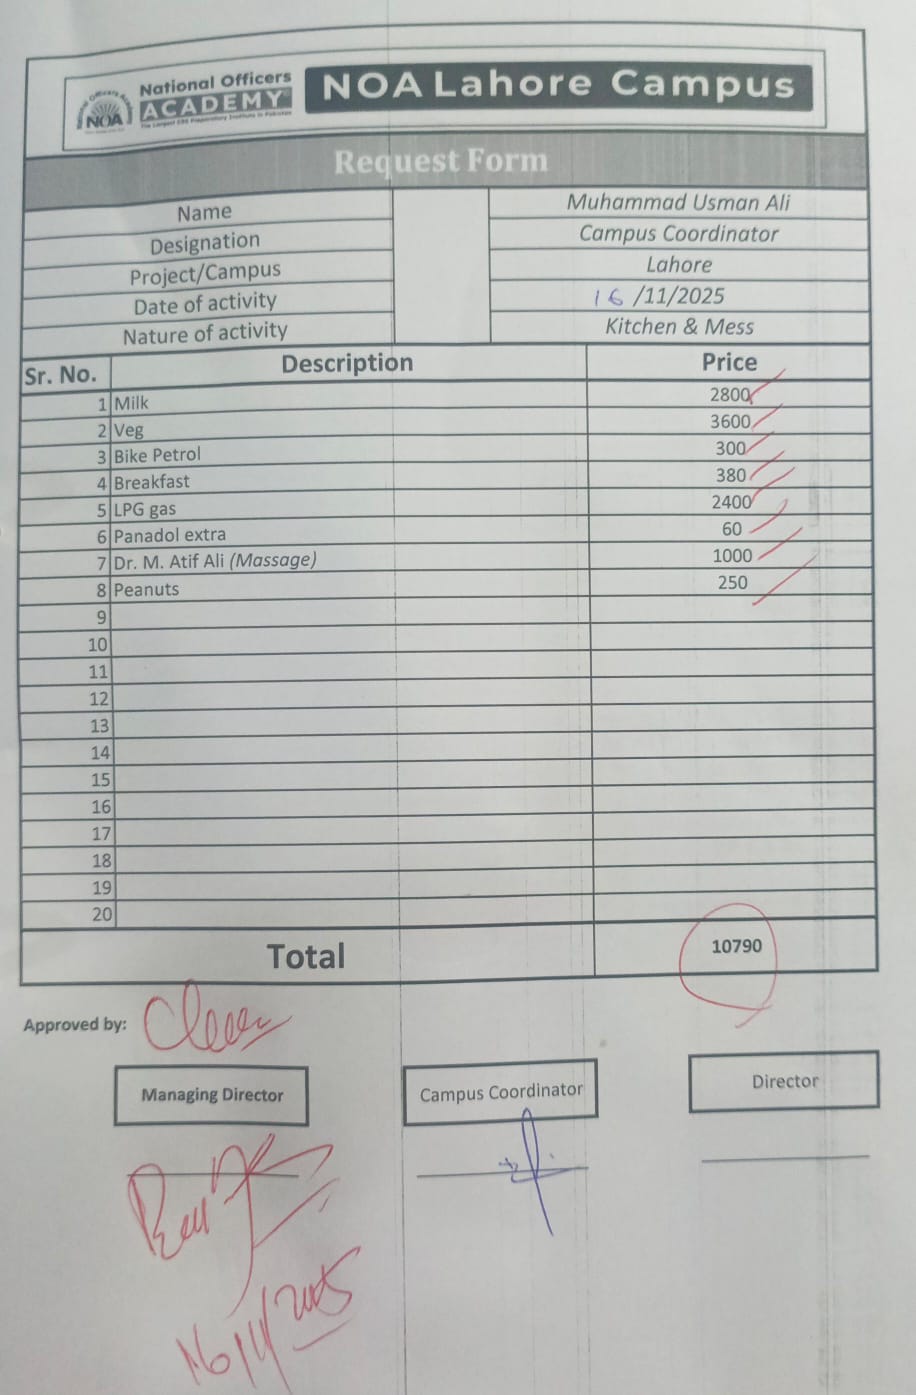 National Officers
ACADEMY
The Largest CSS Preparatory Institute in Pakistan
NOA
NOA Lahore Campus
Request Form
Name Muhammad Usman Ali
Designation Campus Coordinator
Project/Campus Lahore
Date of activity 16 /11/2025
Nature of activity Kitchen & Mess
Sr. No. Description Price
1 Milk 2800
2 Veg 3600
3 Bike Petrol 300
4 Breakfast 380
5 LPG gas 2400
6 Panadol extra 60
7 Dr. M. Atif Ali (Massage) 1000
8 Peanuts 250
9
10
11
12
13
14
15
16
17
18
19
20
Total 10790
Approved by:
Managing Director Campus Coordinator Director
16/11/2025